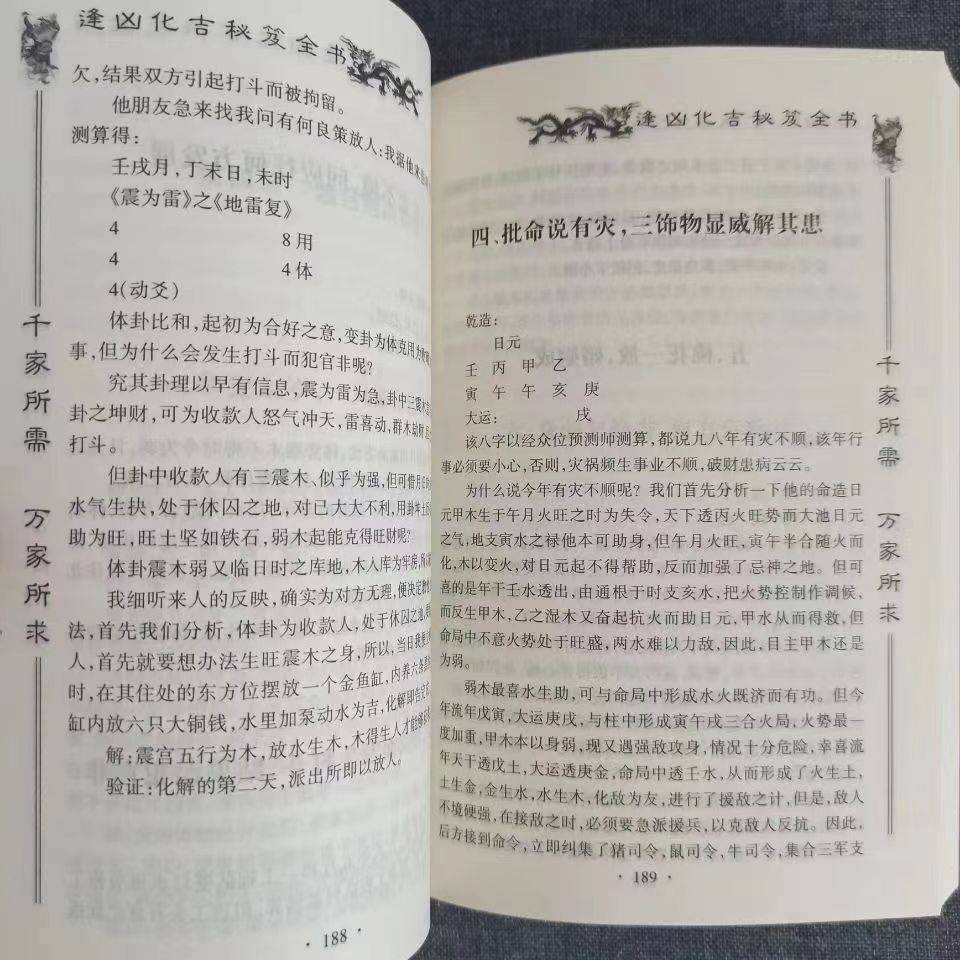 逢凶化吉秘笈全书
千家所需 万家所求
欠，结果双方引起打斗而被拘留。
他朋友急来找我问有何良策放人：我据他来意
测算得：
壬戌月，丁未日，未时
《震为雷》之《地雷复》
4
8用
4
4体
4(动爻)
体卦比和，起初为合好之意，变卦为体克用为
事，但为什么会发生打斗而犯官非呢？
究其卦理以早有信息，震为雷为急，卦中三震木
卦之坤财，可为收款人怒气冲天，雷喜动，群木劫财
打斗。
但卦中收款人有三震木、似乎为强，但可惜月日时
水气生扶，处于休囚之地，对已大大不利，用卦坤土
助为旺，旺土坚如铁石，弱木起能克得旺财呢？
体卦震木弱又临日时之库地，木入库为牢房，所
我细听来人的反映，确实为对方无理，便决定教
法，首先我们分析，体卦为收款人，处于休囚之地，
人，首先就要想办法生旺震木之身，所以，当日我
时，在其住处的东方位摆放一个金鱼缸，内养六条
缸内放六只大铜钱，水里加泵动水为吉，化解即告
解：震宫五行为木，放水生木，木得生人才能
验证：化解的第二天，派出所即以放人。
·188·
逢凶化吉秘笈全书
千家所需 万家所求
四、批命说有灾，三饰物显威解其患
乾造：
日元
壬 丙 甲 乙
寅 午 午 亥 庚
大运： 戌
该八字以经众位预测师测算，都说九八年有灾不顺，该年行
事必须要小心，否则，灾祸频生事业不顺，破财患病云云。
为什么说今年有灾不顺呢？我们首先分析一下他的命造日
元甲木生于午月火旺之时为失令，天下透丙火旺势而大池日元
之气，地支寅水之禄他本可助身，但午月火旺，寅午半合随火而
化，木以变火，对日元起不得帮助，反而加强了忌神之地。但可
喜的是年干壬水透出，由通根于时支亥水，把火势控制作调候，
而反生甲木，乙之湿木又奋起抗火而助日元，甲水从而得救，但
命局中不意火势处于旺盛，两水难以力敌，因此，目主甲木还是
为弱。
弱木最喜水生助，可与命局中形成水火既济而有功。但今
年流年戊寅，大运庚戌，与柱中形成寅午戌三合火局，火势最一
度加重，甲木本以身弱，现又遇强敌攻身，情况十分危险，幸喜流
年天干透戊土，大运透庚金，命局中透壬水，从而形成了火生土，
土生金，金生水，水生木，化敌为友，进行了援敌之计，但是，敌人
不境硬强，在接敌之时，必须要急派援兵，以克敌人反抗。因此，
后方接到命令，立即纠集了猪司令，鼠司令，牛司令，集合三军支
·189·